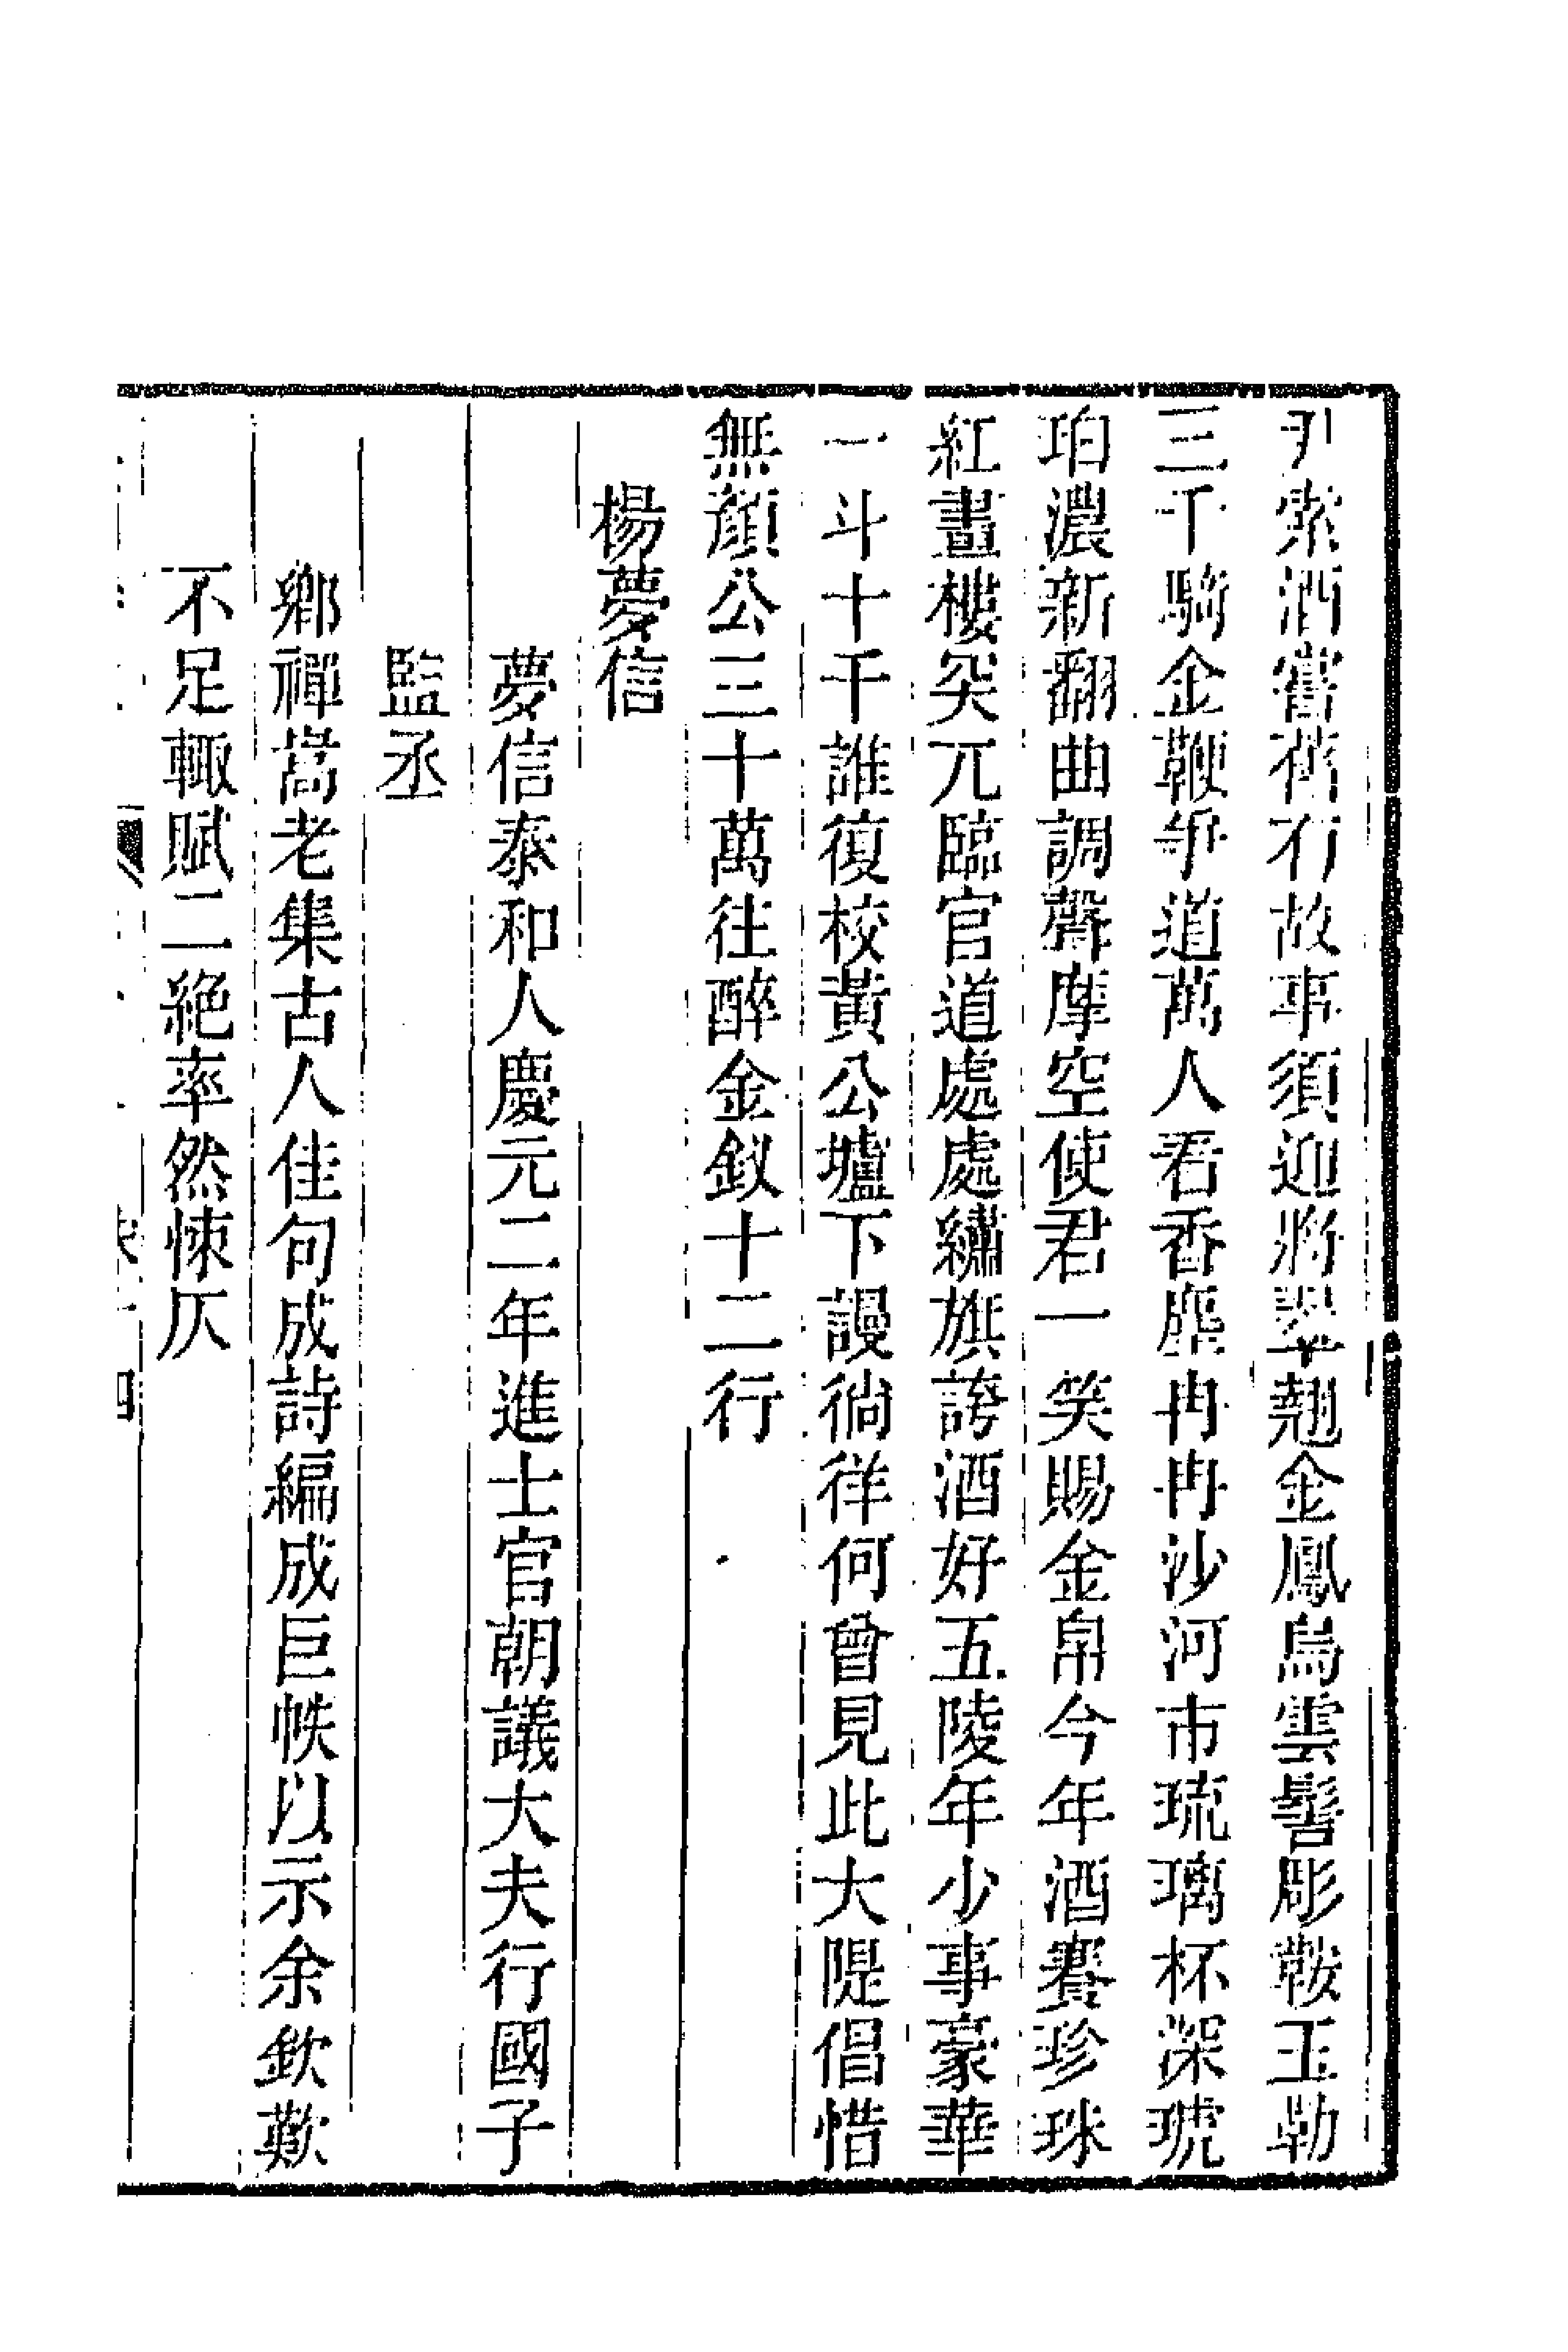 尹索酒嘗舊有故事須迎將翠翹金鳳烏雲髻彫鞍玉勒
三千騎金鞭爭道萬人看香塵冉冉沙河市琉璃杯深琥
珀濃新翻曲調聲摩空使君一笑賜金帛今年酒賽珍珠
紅畫樓突兀臨官道處處繡旗誇酒好五陵年少事豪華
一斗十千誰復校黃公壚下謾徜徉何曾見此大隄倡惜
無顏公三十萬往醉金釵十二行
楊夢信
夢信泰和人慶元二年進士官朝議大夫行國子
監丞
鄉禪嵩老集古人佳句成詩編成巨帙以示余欽歎
不足輒賦二絕率然悚仄